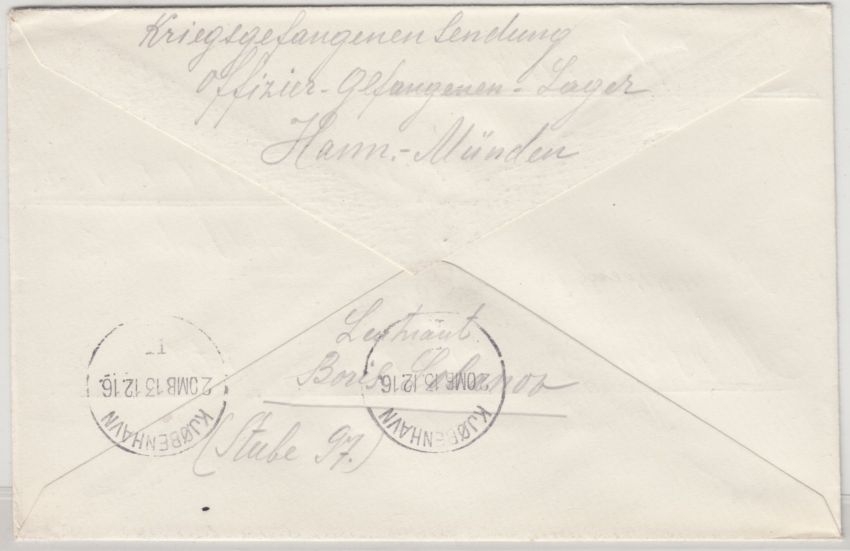 Kriegsgefangenensendung
Offizier-Gefangenen-Lager
Hann.-Münden
Leutnant
Boris
(Stube 97.)
KJØBENHAVN
20MB 13.12.16.
KJØBENHAVN
20MB 13.12.16.